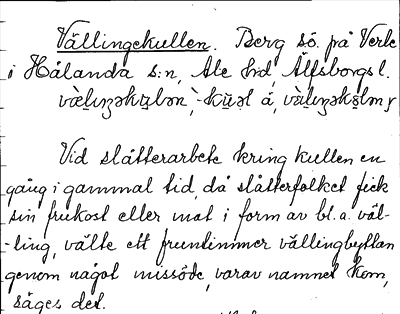 Vällingekullen. Berg sö. på Verle
i Hålanda s:n, Ale hd, Älfsborgs l.
Vid slåtterarbete kring kullen en
gång i gammal tid, då slåtterfolket fick
sin frukost eller mat i form av bl. a. väl-
-ling, välte ett fruntimmer vällingbyttan
genom något missöde, varav namnet kom,
säges det.